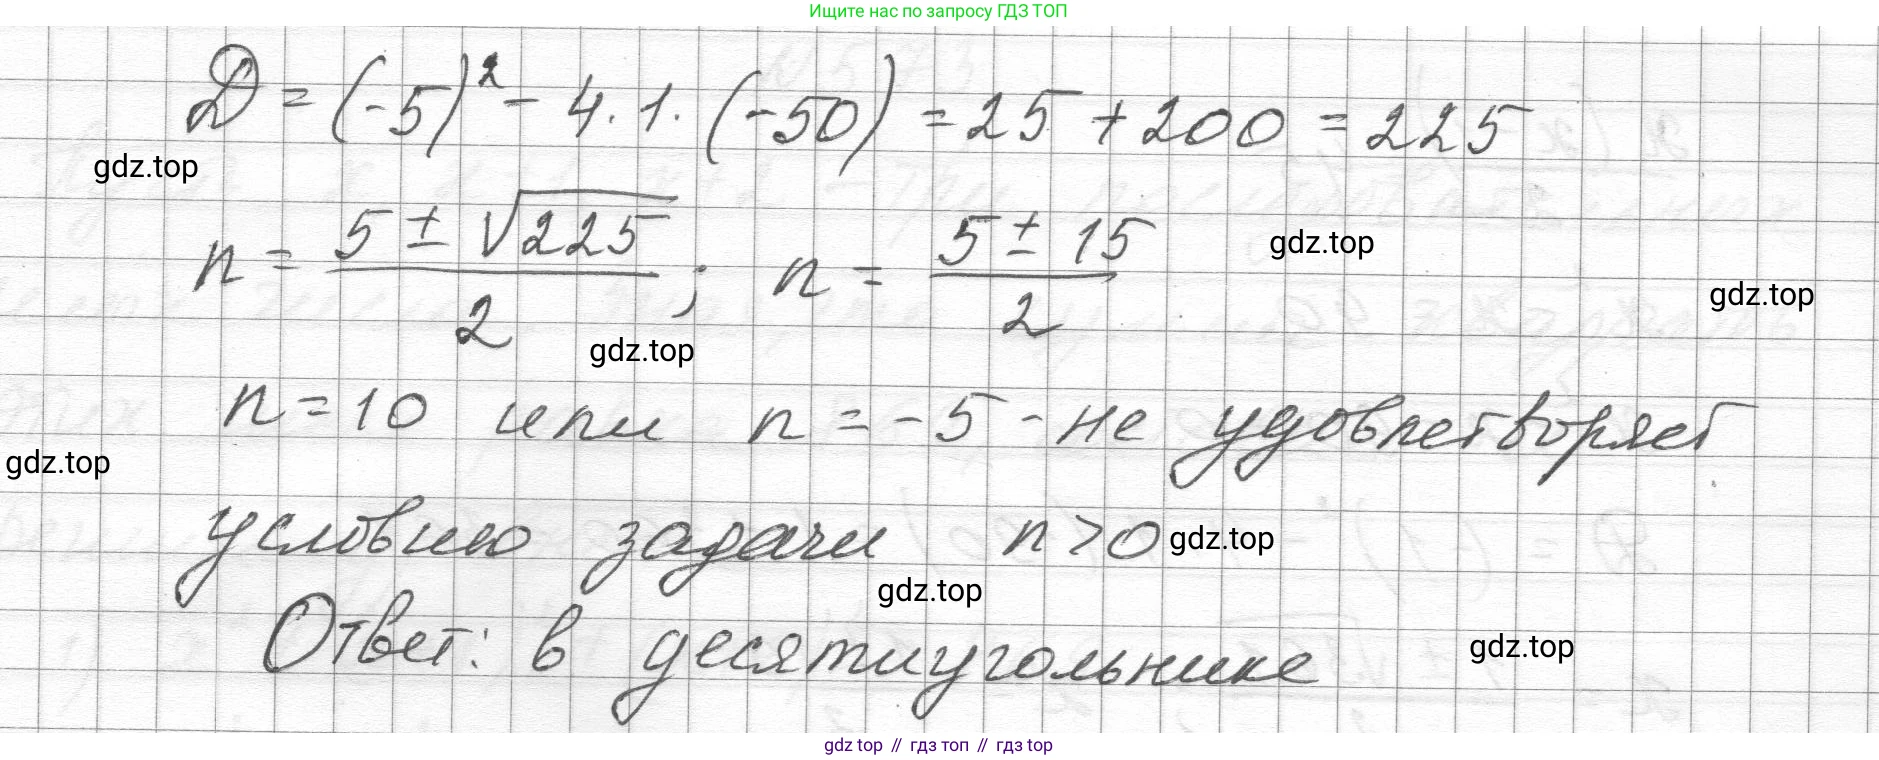 Ищите нас по запросу ГДЗ ТОП
D = (-5)² - 4·1·(-50) = 25 + 200 = 225
gdz.top
n = (5 ± √225)/2 ; n = (5 ± 15)/2
gdz.top
gdz.top
gdz.top
n = 10 или n = -5 - не удовлетворяет
gdz.top
условию задачи n > 0
gdz.top
gdz.top
Ответ: в десятиугольнике
gdz.top
gdz top // гдз топ // gdz top